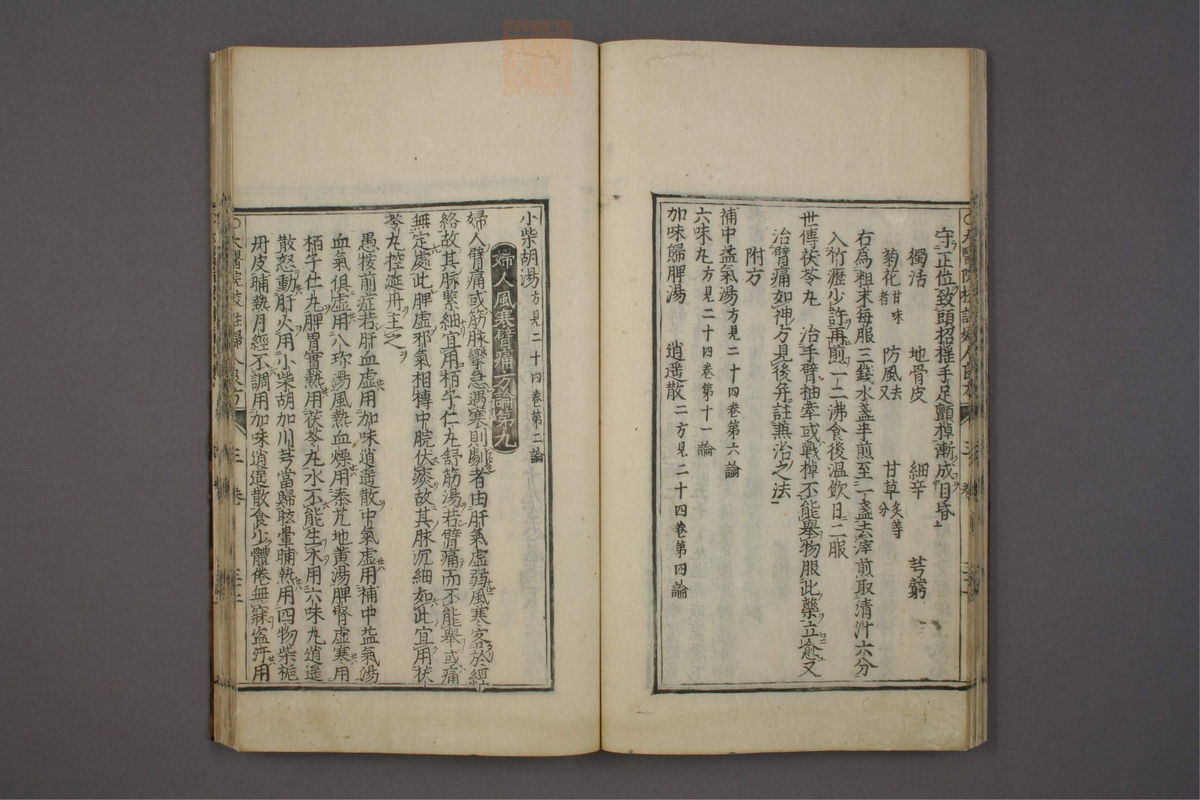 守正位致頭招搖手足顫掉漸成目昏
獨活 地骨皮 細辛 芎藭
菊花甘味者 防風去叉 甘草炙等分
右爲粗末每服三錢水盞半煎至一盞去滓煎取清汁六分
入竹瀝少許再煎一二沸食後溫飲日二服
世傳茯苓丸 治手臂抽牽或戰掉不能擧物服此藥立愈又
治臂痛如神方見後并註兼治之法
附方
補中益氣湯方見二十四卷第六論
六味丸方見二十四卷第十一論
加味歸脾湯 逍遙散二方見二十四卷第四論
小柴胡湯方見二十四卷第二論
婦人風寒臂痛方論第九
婦人臂痛或筋脉攣急遇寒則劇者由肝氣虛弱風寒客於經
絡故其脉緊細宜用栢子仁丸舒筋湯若臂痛而不能擧或痛
無定處此脾虛邪氣相摶中脘伏痰故其脉沉細如此宜用茯
苓丸控涎丹主之
愚按前症若肝血虛用加味逍遙散中氣虛用補中益氣湯
血氣俱虛用八珍湯風熱血燥用秦艽地黃湯脾腎虛寒用
栢子仁丸脾胃實熱用茯苓丸水不能生木用六味丸逍遙
散怒動肝火用小柴胡加川芎當歸眩暈晡熱用四物柴梔
丹皮晡熱月經不調用加味逍遙散食少體倦無寐盜汗用